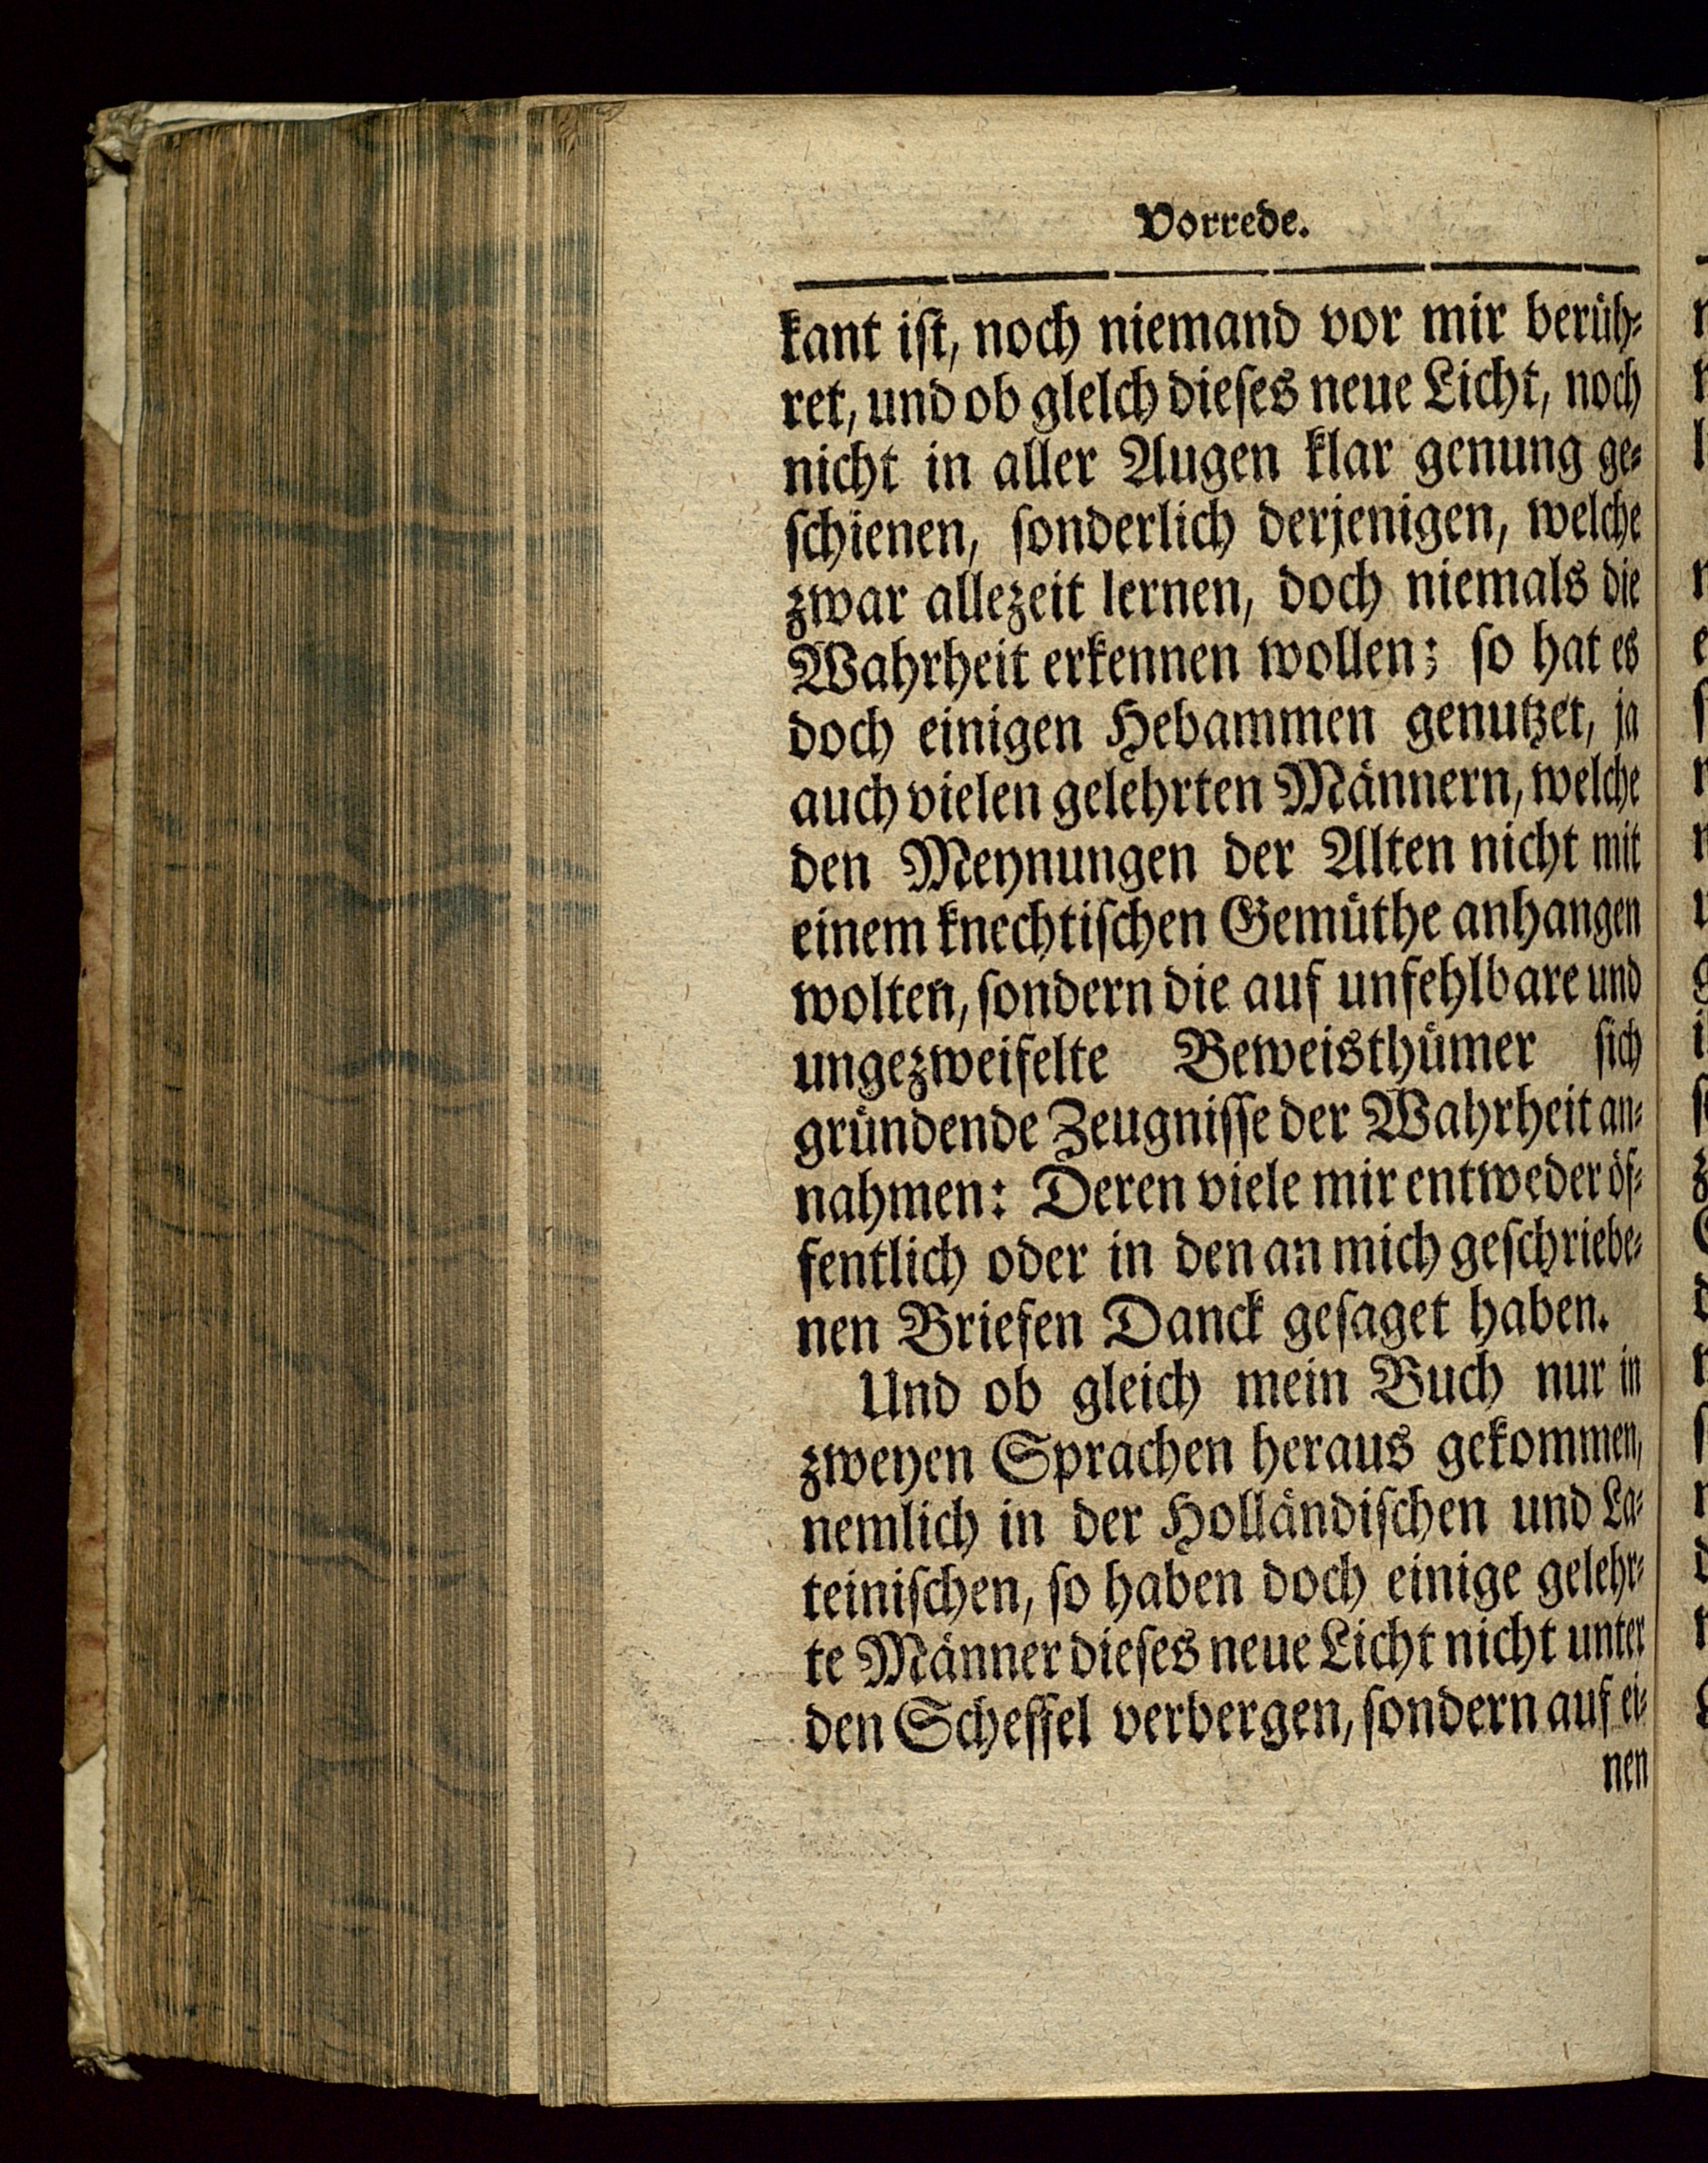 Vorrede.
kant iſt, noch niemand vor mir beruͤh⸗
ret, und ob glelch dieſes neue Licht, noch
nicht in aller Augen klar genung ge⸗
ſchienen, ſonderlich derjenigen, welche
zwar allezeit lernen, doch niemals die
Wahrheit erkennen wollen; ſo hat es
doch einigen Hebammen genutzet, ja
auch vielen gelehrten Maͤnnern, welche
den Meynungen der Alten nicht mit
einem knechtiſchen Gemuͤthe anhangen
wolten, ſondern die auf unfehlbare und
ungezweifelte Beweisthuͤmer ſich
gruͤndende Zeugniſſe der Wahrheit an⸗
nahmen: Deren viele mir entweder oͤf⸗
fentlich oder in den an mich geſchriebe⸗
nen Briefen Danck geſaget haben.
Und ob gleich mein Buch nur in
zweyen Sprachen heraus gekommen,
nemlich in der Hollaͤndiſchen und La⸗
teiniſchen, ſo haben doch einige gelehr⸗
te Maͤnner dieſes neue Licht nicht unter
den Scheffel verbergen, ſondern auf ei⸗
nen